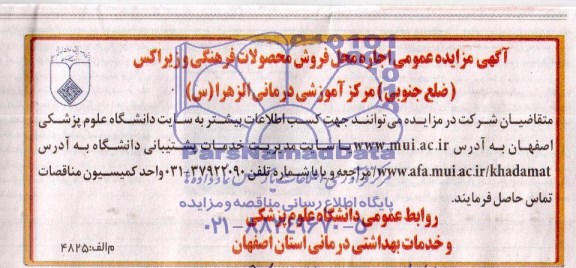 آگهی مزایده عمومی اجاره محل فروش محصولات فرهنگی و زیراکس
(ضلع جنوبی) مرکز آموزشی درمانی الزهرا (س)
متقاضیان شرکت در مزایده می‌توانند جهت کسب اطلاعات بیشتر به سایت دانشگاه علوم پزشکی
اصفهان به آدرس www.mui.ac.ir یا سایت مدیریت خدمات پشتیبانی دانشگاه به آدرس
www.afa.mui.ac.ir/khadamat مراجعه و یا با شماره تلفن ۳۷۹۲۲۰۹۰-۰۳۱ واحد کمیسیون مناقصات
تماس حاصل فرمایند.
روابط عمومی دانشگاه علوم پزشکی
و خدمات بهداشتی درمانی استان اصفهان
م الف: ۴۸۲۵
ParsNamadData
پایگاه اطلاع رسانی مناقصه و مزایده
۰۲۱-۸۸۳۴۹۶۷۰-۵